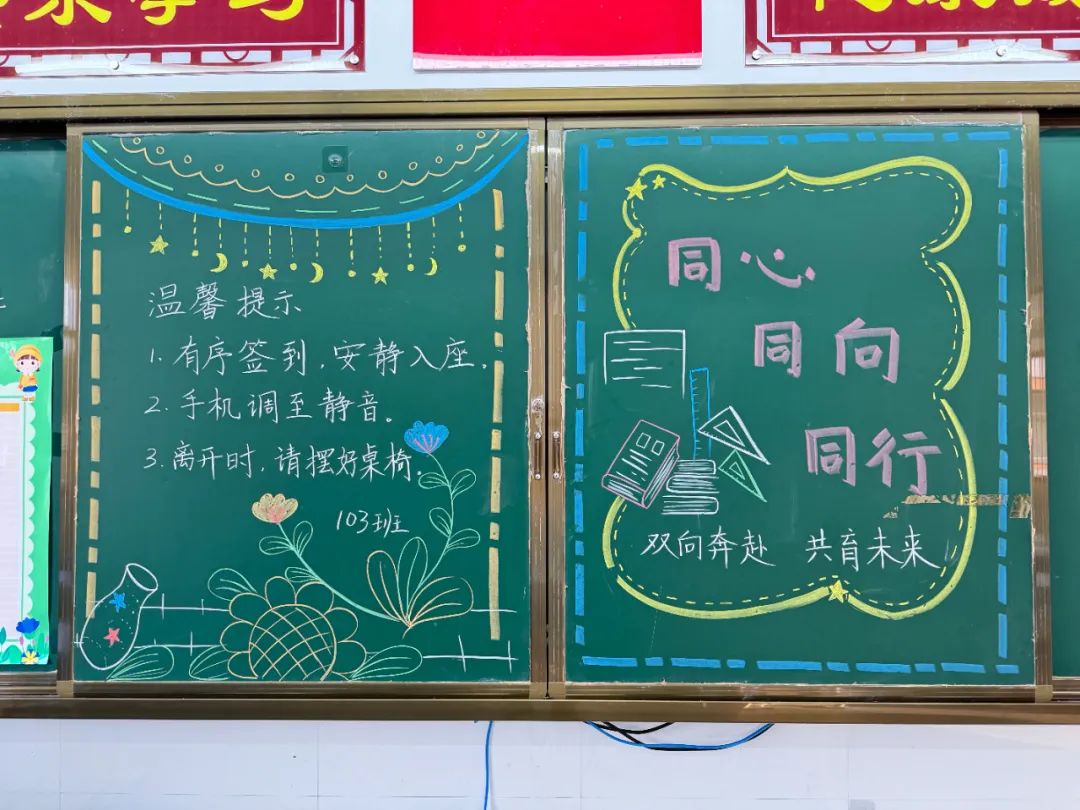 学习
温馨提示
1. 有序签到,安静入座.
2. 手机调至静音。
3. 离开时,请摆好桌椅.
103班
同心
同向
同行
双向奔赴 共育未来